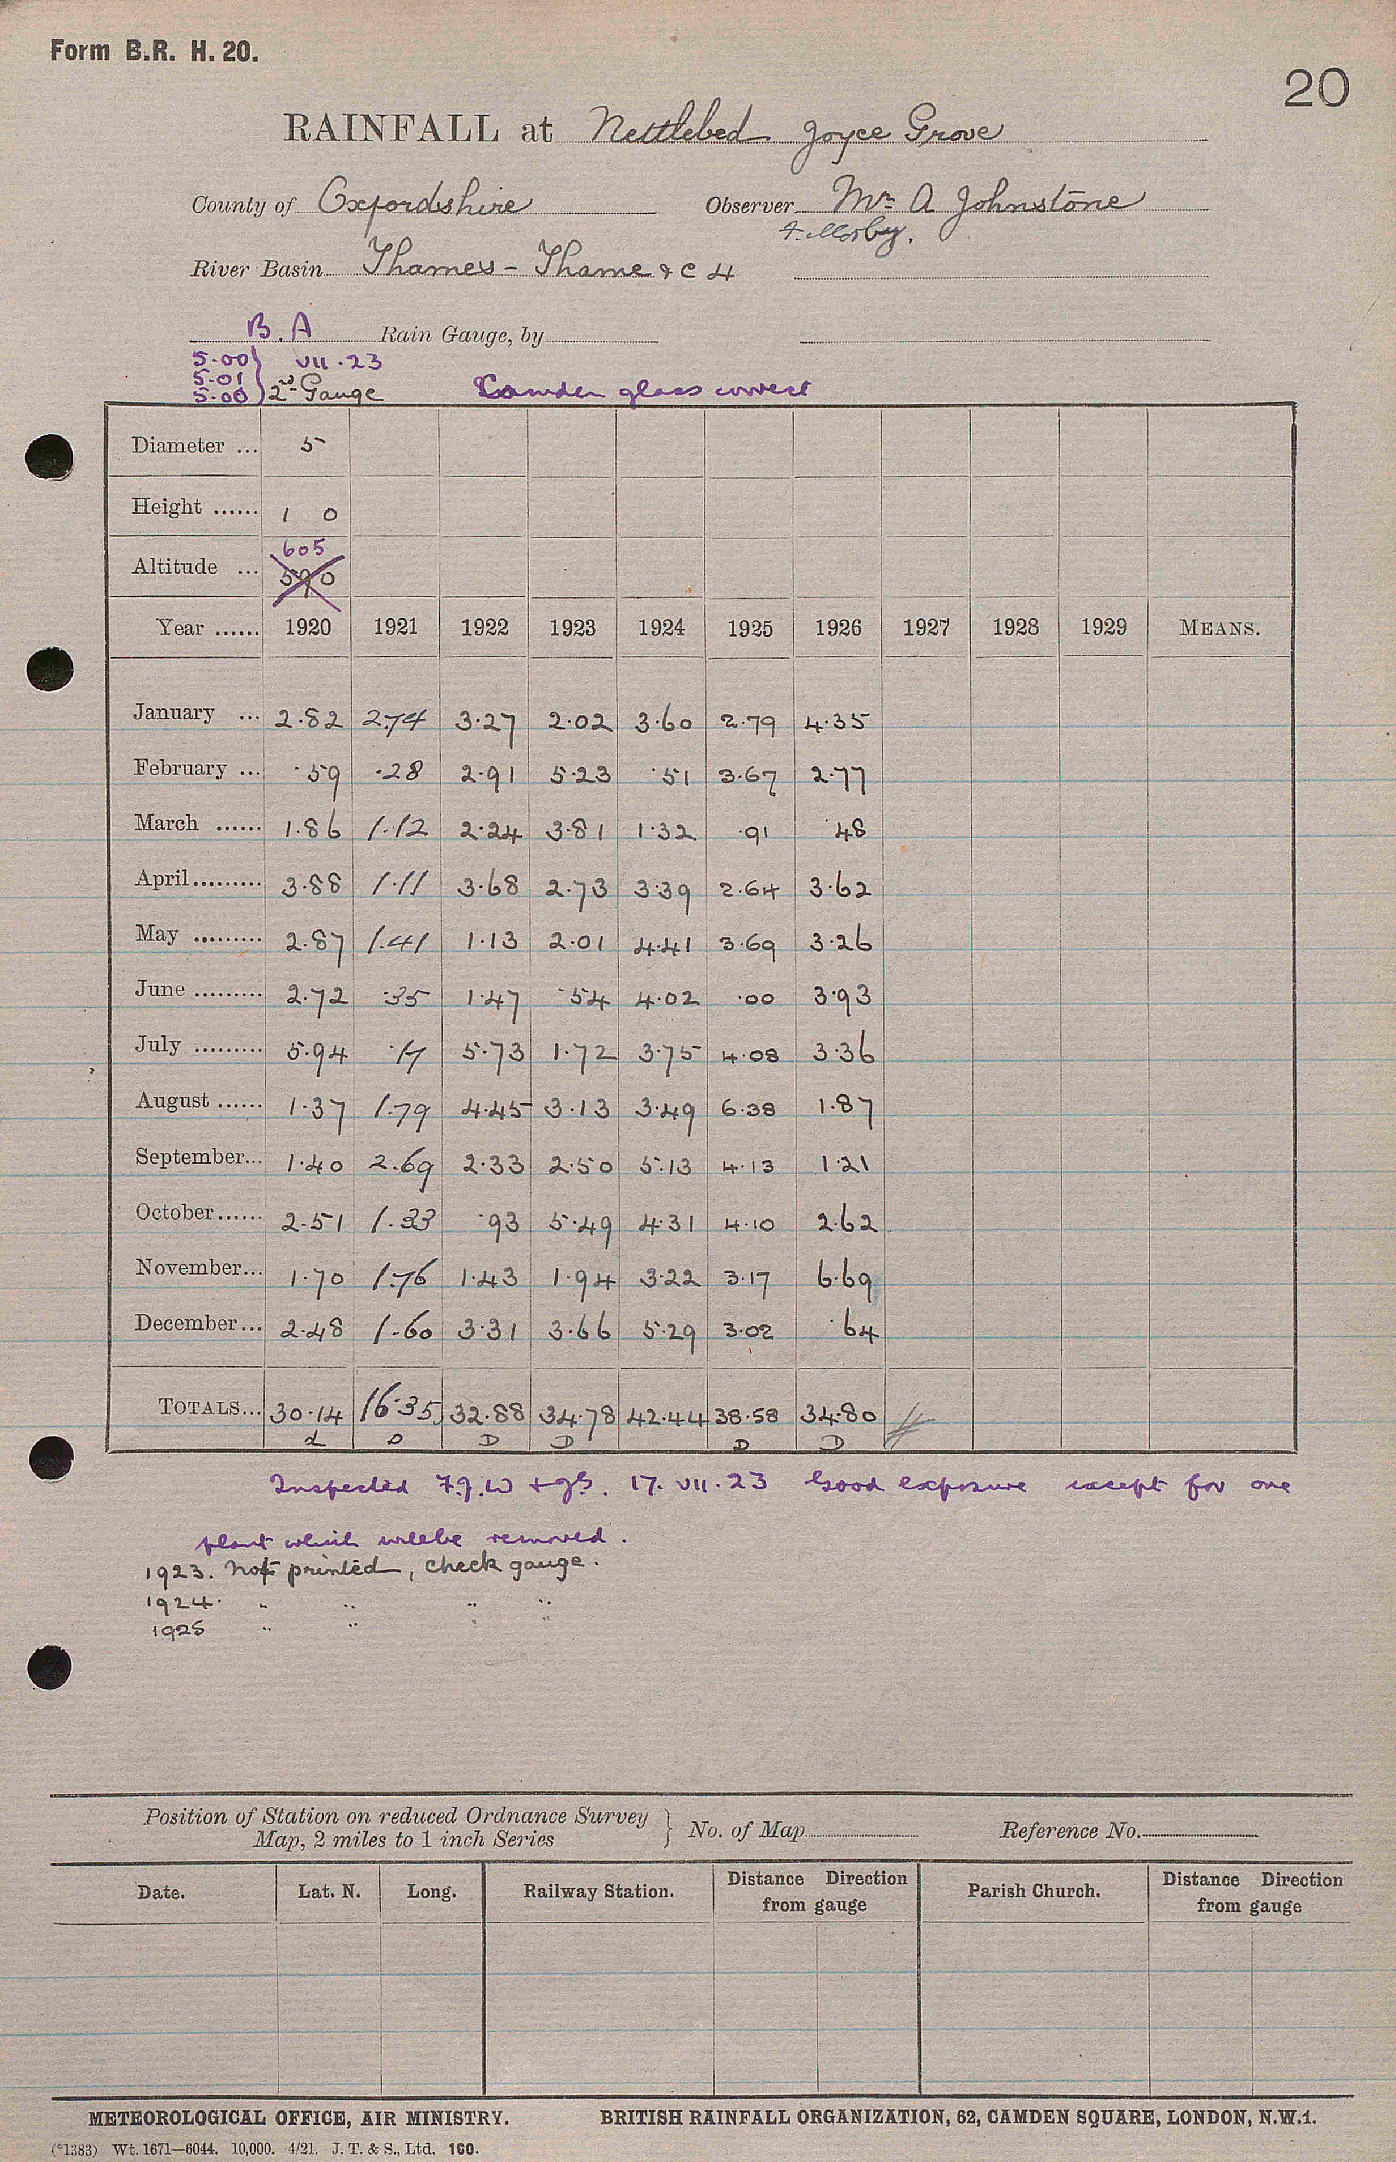 Form B.R. H. 20.
20
RAINFALL at Nettlebed Joyce Grove
County of Oxfordshire Observer Mr. A Johnstone
F. Mosby.
River Basin Thames - Thame &c 4
B.A Rain Gauge, by
5.00 } VII.23
5.01
5.00 } 2nd Gauge Camden glass correct
Diameter ... 5
Height ...... 1 0
605
Altitude ... 590
Year ...... 1920 1921 1922 1923 1924 1925 1926 1927 1928 1929 MEANS.
January ... 2.82 2.74 3.27 2.02 3.60 2.79 4.35
February ... .59 .28 2.91 5.23 .51 3.67 2.77
March ...... 1.86 1.12 2.24 3.81 1.32 .91 .48
April ......... 3.88 1.11 3.68 2.73 3.39 2.64 3.62
May ......... 2.87 1.41 1.13 2.01 4.41 3.69 3.26
June ......... 2.72 .35 1.47 .54 4.02 .00 3.93
July ......... 5.94 .17 5.73 1.72 3.75 4.08 3.36
August ...... 1.37 1.79 4.45 3.13 3.49 6.38 1.87
September... 1.40 2.69 2.33 2.50 5.13 4.13 1.21
October...... 2.51 1.33 .93 5.49 4.31 4.10 2.62
November... 1.70 1.76 1.43 1.94 3.22 3.17 6.69
December... 2.48 1.60 3.31 3.66 5.29 3.02 .64
TOTALS... 30.14 16.35 32.88 34.78 42.44 38.58 34.80
d D D D D D
Inspected F.J.W + J.S. 17.VII.23 Good exposure except for one
plant which will be removed.
1923. Not printed, check gauge.
1924. " " " "
1925 " " " "
Position of Station on reduced Ordnance Survey
Map, 2 miles to 1 inch Series } No. of Map Reference No.
Date. Lat. N. Long. Railway Station. Distance Direction from gauge Parish Church. Distance Direction from gauge
METEOROLOGICAL OFFICE, AIR MINISTRY. BRITISH RAINFALL ORGANIZATION, 62, CAMDEN SQUARE, LONDON, N.W.1.
(*1383) Wt. 1671—6044. 10,000. 4/21. J. T. & S., Ltd. 160.